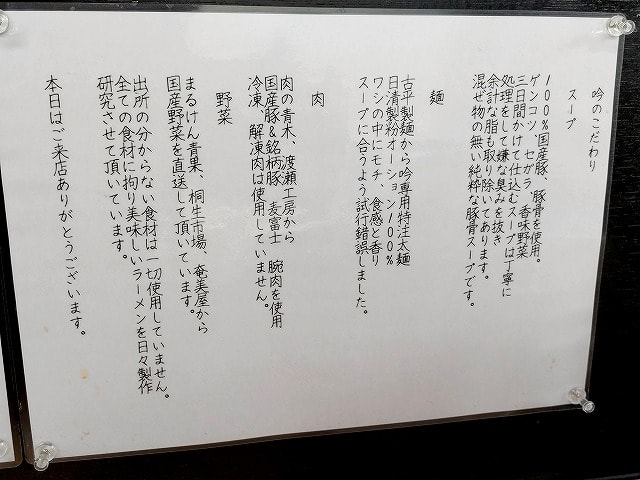 吟のこだわり
スープ
100%国産豚、豚骨を使用。
ゲンコツ、セガラ、香味野菜
三日間かけて仕込むスープは丁寧に
処理をして嫌な臭みを抜き
余計な脂も取り除いてあります。
混ぜ物の無い純粋な豚骨スープです。
麺
吉平製麺から吟専用特注太麺
日清製粉オーション100%
ワシの中にモチ、食感と香り
スープに合うよう試行錯誤しました。
肉
肉の青木、渡瀬工房から
国産豚&銘柄豚 麦富士 腕肉を使用
冷凍、解凍肉は使用していません。
野菜
まるけん青果、桐生市場、奄美屋から
国産野菜を直送して頂いています。
出所の分からない食材は一切使用していません。
全ての食材に拘り美味しいラーメンを日々製作
研究させて頂いています。
本日はご来店ありがとうございます。